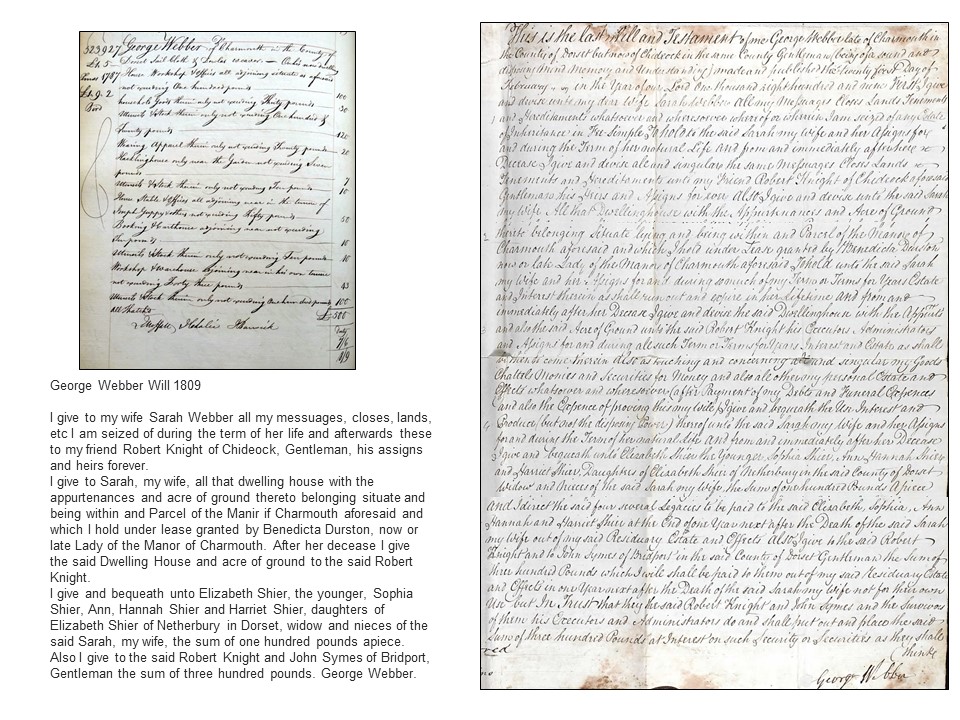 323927 George Webber of Charmouth in the County of
Dorset Sail Cloth &
House Workshop & Offices all adjoining situate as aforesaid
not exceeding One hundred pounds 100
household Goods therein only not exceeding Thirty pounds 30
Utensils & Stock therein only not exceeding One hundred &
Twenty pounds 120
Wearing Apparel therein only not exceeding Twenty pounds 20
only near the Garden not exceeding Seven
pounds 7
Utensils & Stock therein only not exceeding Ten pounds 10
House Stable & Offices all adjoining near in the tenure of
Joseph & others not exceeding Fifty pounds 50
adjoining near not exceeding
Ten pounds 10
Utensils & Stock therein only not exceeding Ten pounds 10
Workshop & Warehouse adjoining near in his own tenure
not exceeding Forty three pounds 43
Utensils & Stock therein only not exceeding One hundred pounds 100
all Thatched £500
George Webber Will 1809
I give to my wife Sarah Webber all my messuages, closes, lands,
etc I am seized of during the term of her life and afterwards these
to my friend Robert Knight of Chideock, Gentleman, his assigns
and heirs forever.
I give to Sarah, my wife, all that dwelling house with the
appurtenances and acre of ground thereto belonging situate and
being within and Parcel of the Manir if Charmouth aforesaid and
which I hold under lease granted by Benedicta Durston, now or
late Lady of the Manor of Charmouth. After her decease I give
the said Dwelling House and acre of ground to the said Robert
Knight.
I give and bequeath unto Elizabeth Shier, the younger, Sophia
Shier, Ann, Hannah Shier and Harriet Shier, daughters of
Elizabeth Shier of Netherbury in Dorset, widow and nieces of the
said Sarah, my wife, the sum of one hundred pounds apiece.
Also I give to the said Robert Knight and John Symes of Bridport,
Gentleman the sum of three hundred pounds. George Webber.
This is the last Will and Testament of me George Webber late of Charmouth in
the County of Dorset but now of Chideock in the same County Gentleman (being of a sound and
disposing Mind Memory and Understanding) made and published the Twenty first Day of
February in the Year of our Lord One thousand eight hundred and nine First I give
and devise unto my dear Wife Sarah Webber All my Messuages Closes Lands Tenements
and Hereditaments whatsoever and wheresoever whereof or wherein I am seized of any Estate
of Inheritance in Fee Simple To hold to the said Sarah my wife and her Assigns for
and during the Term of her natural Life And from and immediately after her
Decease I give and devise all and singular the same Messuages Closes Lands
Tenements and Hereditaments unto my Friend Robert Knight of Chideock aforesaid
Gentleman his Heirs and Assigns for ever Also I give and devise unto the said Sarah
my wife All that Dwellinghouse with the Appurtenances and Acre of Ground
thereto belonging Situate lying and being within and Parcel of the Manor of
Charmouth aforesaid and which I hold under Lease granted by Benedicta Durston
now or late Lady of the Manor of Charmouth aforesaid To hold unto the said Sarah
my wife and her Assigns for and during so much of my Term or Terms for Years Estate
and Interest therein as shall run out and expire in her lifetime And from and
immediately after her Decease I give and devise the said Dwellinghouse with the Appurts
and also the said Acre of Ground unto the said Robert Knight his Executors Administrators
and Assigns for and during all such Term or Terms for Years Interest and Estate as shall
be then to come therein Also as touching and concerning all and singular my Goods
Chattels Monies and Securities for Money and also all other my personal Estate and
Effects whatsoever and wheresoever (after Payment of my Debts and Funeral Expences
and also the Expence of proving this my Will) I give and bequeath the Use Interest and
Produce (but not the disposing Power) thereof unto the said Sarah my wife and her Assigns
for and during the Term of her natural life And from and immediately after her Decease
I give and bequeath unto Elizabeth Shier the Younger, Sophia Shier, Ann Hannah Shier
and Harriet Shier, Daughters of Elizabeth Shier of Netherbury in the said County of Dorset
Widow and Nieces of the said Sarah my Wife, the Sum of one hundred Pounds Apiece
And I direct the said four several Legacies to be paid to the said Elizabeth, Sophia, Ann
Hannah and Harriet Shier at the End of one Year next after the Death of the said Sarah
my wife out of my said Residuary Estate and Effects Also I give to the said Robert
Knight and to John Symes of Bridport in the said County of Dorset Gentleman the Sum of
three hundred Pounds which I will shall be paid to them out of my said Residuary Estate
and Effects in one Year next after the Death of the said Sarah my wife not for their own
Use but In Trust that they the said Robert Knight and John Symes and the Survivor
of them his Executors and Administrators do and shall put out and place the said
Sum of three hundred Pounds at Interest on such Security or Securities as they shall
think
George Webber